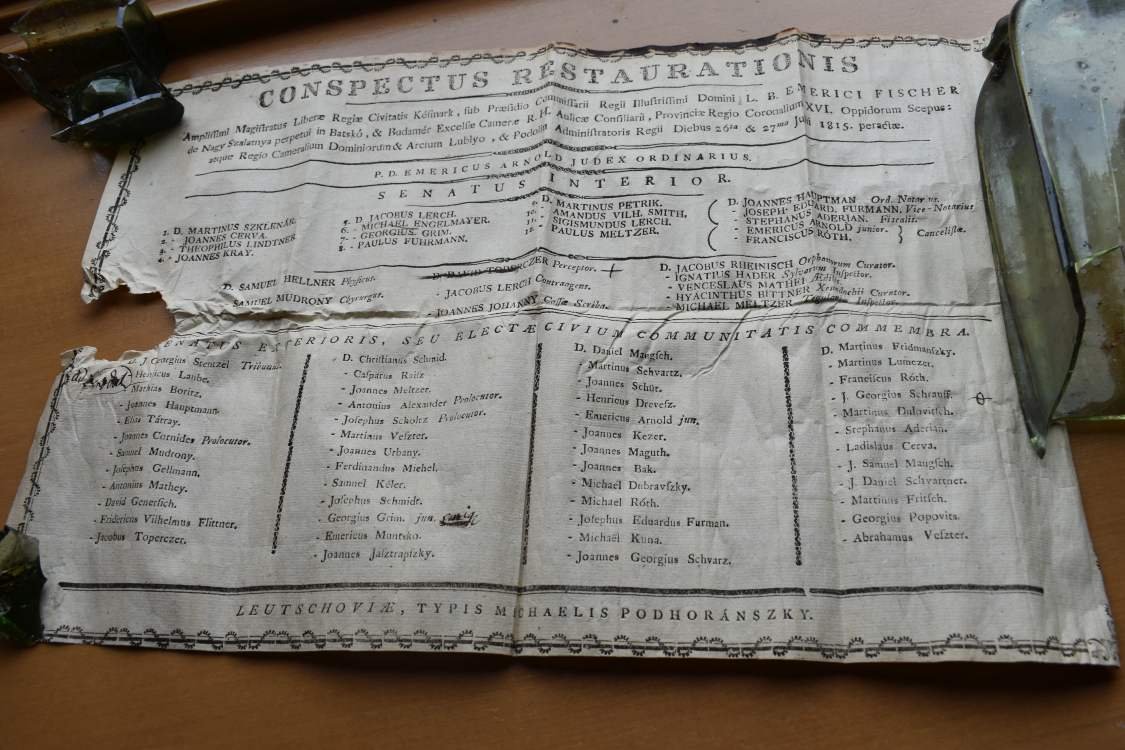 CONSPECTUS RESTAURATIONIS
Amplissimi Magistratus Liberæ Regiæ Civitatis Késmark, sub Præsidio Commissarii Regii Illustrissimi Domini, L. B. EMERICI FISCHER
de Nagy Szalatnya perpetui in Batskó, & Budamér Excelsæ Cameræ R. H. Aulicæ Consiliarii, Provinciæ Regio Coronalium XVI. Oppidorum Scepus:
atque Regio Cameralium Dominiorum & Arcium Lublyo, & Podolin Administratoris Regii Diebus 26ta & 27ma Julii 1815. peractæ.
P. D. EMERICUS ARNOLD JUDEX ORDINARIUS.
SENATUS INTERIOR.
1. D. MARTINUS SZKLENÁR.
2. - JOANNES CERVA.
3. - THEOPHILUS LINDTNER
4. - JOANNES KRAY.
5. D. JACOBUS LERCH.
6. - MICHAEL ENGELMAYER.
7. - GEORGIUS. GRIM.
8. - PAULUS FUHRMANN.
9. D. MARTINUS PETRIK.
10. - AMANDUS VILH. SMITH.
11. - SIGISMUNDUS LERCH.
12. - PAULUS MELTZER.
D. JOANNES HAUPTMAN Ord. Notarius.
- JOSEPH EDUARD. FURMANN. Vice-Notarius
- STEPHANUS ADERIAN. Fiscalis.
- EMERICUS ARNOLD junior. } Cancellistæ.
- FRANCISCUS RÓTH.
D. SAMUEL HELLNER Physicus.
SAMUEL MUDRONY Chyrurgus.
D. DAVID TOPERCZER Perceptor.
- JACOBUS LERCH Contraagens.
- JOANNES JOHANNY Cassæ Scriba.
D. JACOBUS RHEINISCH Orphanorum Curator.
- IGNATIUS HADER Sylvarum Inspector.
- VENCESLAUS MATHEI Ædilis.
- HYACINTHUS BITTNER Xenodochii Curator.
- MICHAEL MELTZER Inspector.
SENATUS EXTERIORIS, SEU ELECTÆ CIVIUM COMMUNITATIS COMMEMBRA.
D. J. Georgius Stenczel Tribunus.
Henricus Laube.
Mathias Boritz.
- Joannes Hauptmann.
- Elias Tátray.
- Joannes Cornides Prolocutor.
- Samuel Mudrony.
- Josephus Gellmann.
- Antonius Mathey.
- David Genersich.
- Fridericus Vilhelmus Flittner.
- Jacobus Toperczer.
D. Christianus Schmid.
- Casparus Raisz
- Joannes Meltzer.
- Antonius Alexander Prolocutor.
- Josephus Scholcz Prolocutor.
- Martinus Veszter.
- Joannes Urbany.
- Ferdinandus Michel.
- Samuel Kéler.
- Josephus Schmidt.
- Georgius Grim. jun.
- Emericus Muntsko.
- Joannes Jasztrapszky.
D. Daniel Maugsch.
- Martinus Schvartz.
- Joannes Schür.
- Henricus Drevesz.
- Emericus Arnold jun.
- Joannes Kezer.
- Joannes Maguth.
- Joannes Bak.
- Michael Dubravszky.
- Michael Róth.
- Josephus Eduardus Furman.
- Michael Kuna.
- Joannes Georgius Schvarz.
D. Martinus Fridmanszky.
- Martinus Lumczer.
- Franciscus Róth.
- J. Georgius Schrauff.
- Martinus Dulovitsch.
- Stephanus Aderian.
- Ladislaus Cerva.
- J. Samuel Maugsch.
- J. Daniel Schvartner.
- Martinus Fritsch.
- Georgius Popovits.
- Abrahamus Veszter.
LEUTSCHOVIÆ, TYPIS MICHAELIS PODHORÁNSZKY.